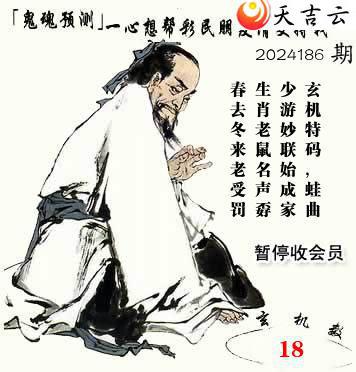 天吉云
「鬼魂预测」一心想帮彩民朋
2024186 期
玄机特码，蛙曲
少游妙联始成家
生肖老鼠名声孬
春去冬来老受罚
暂停收会员
玄机
18